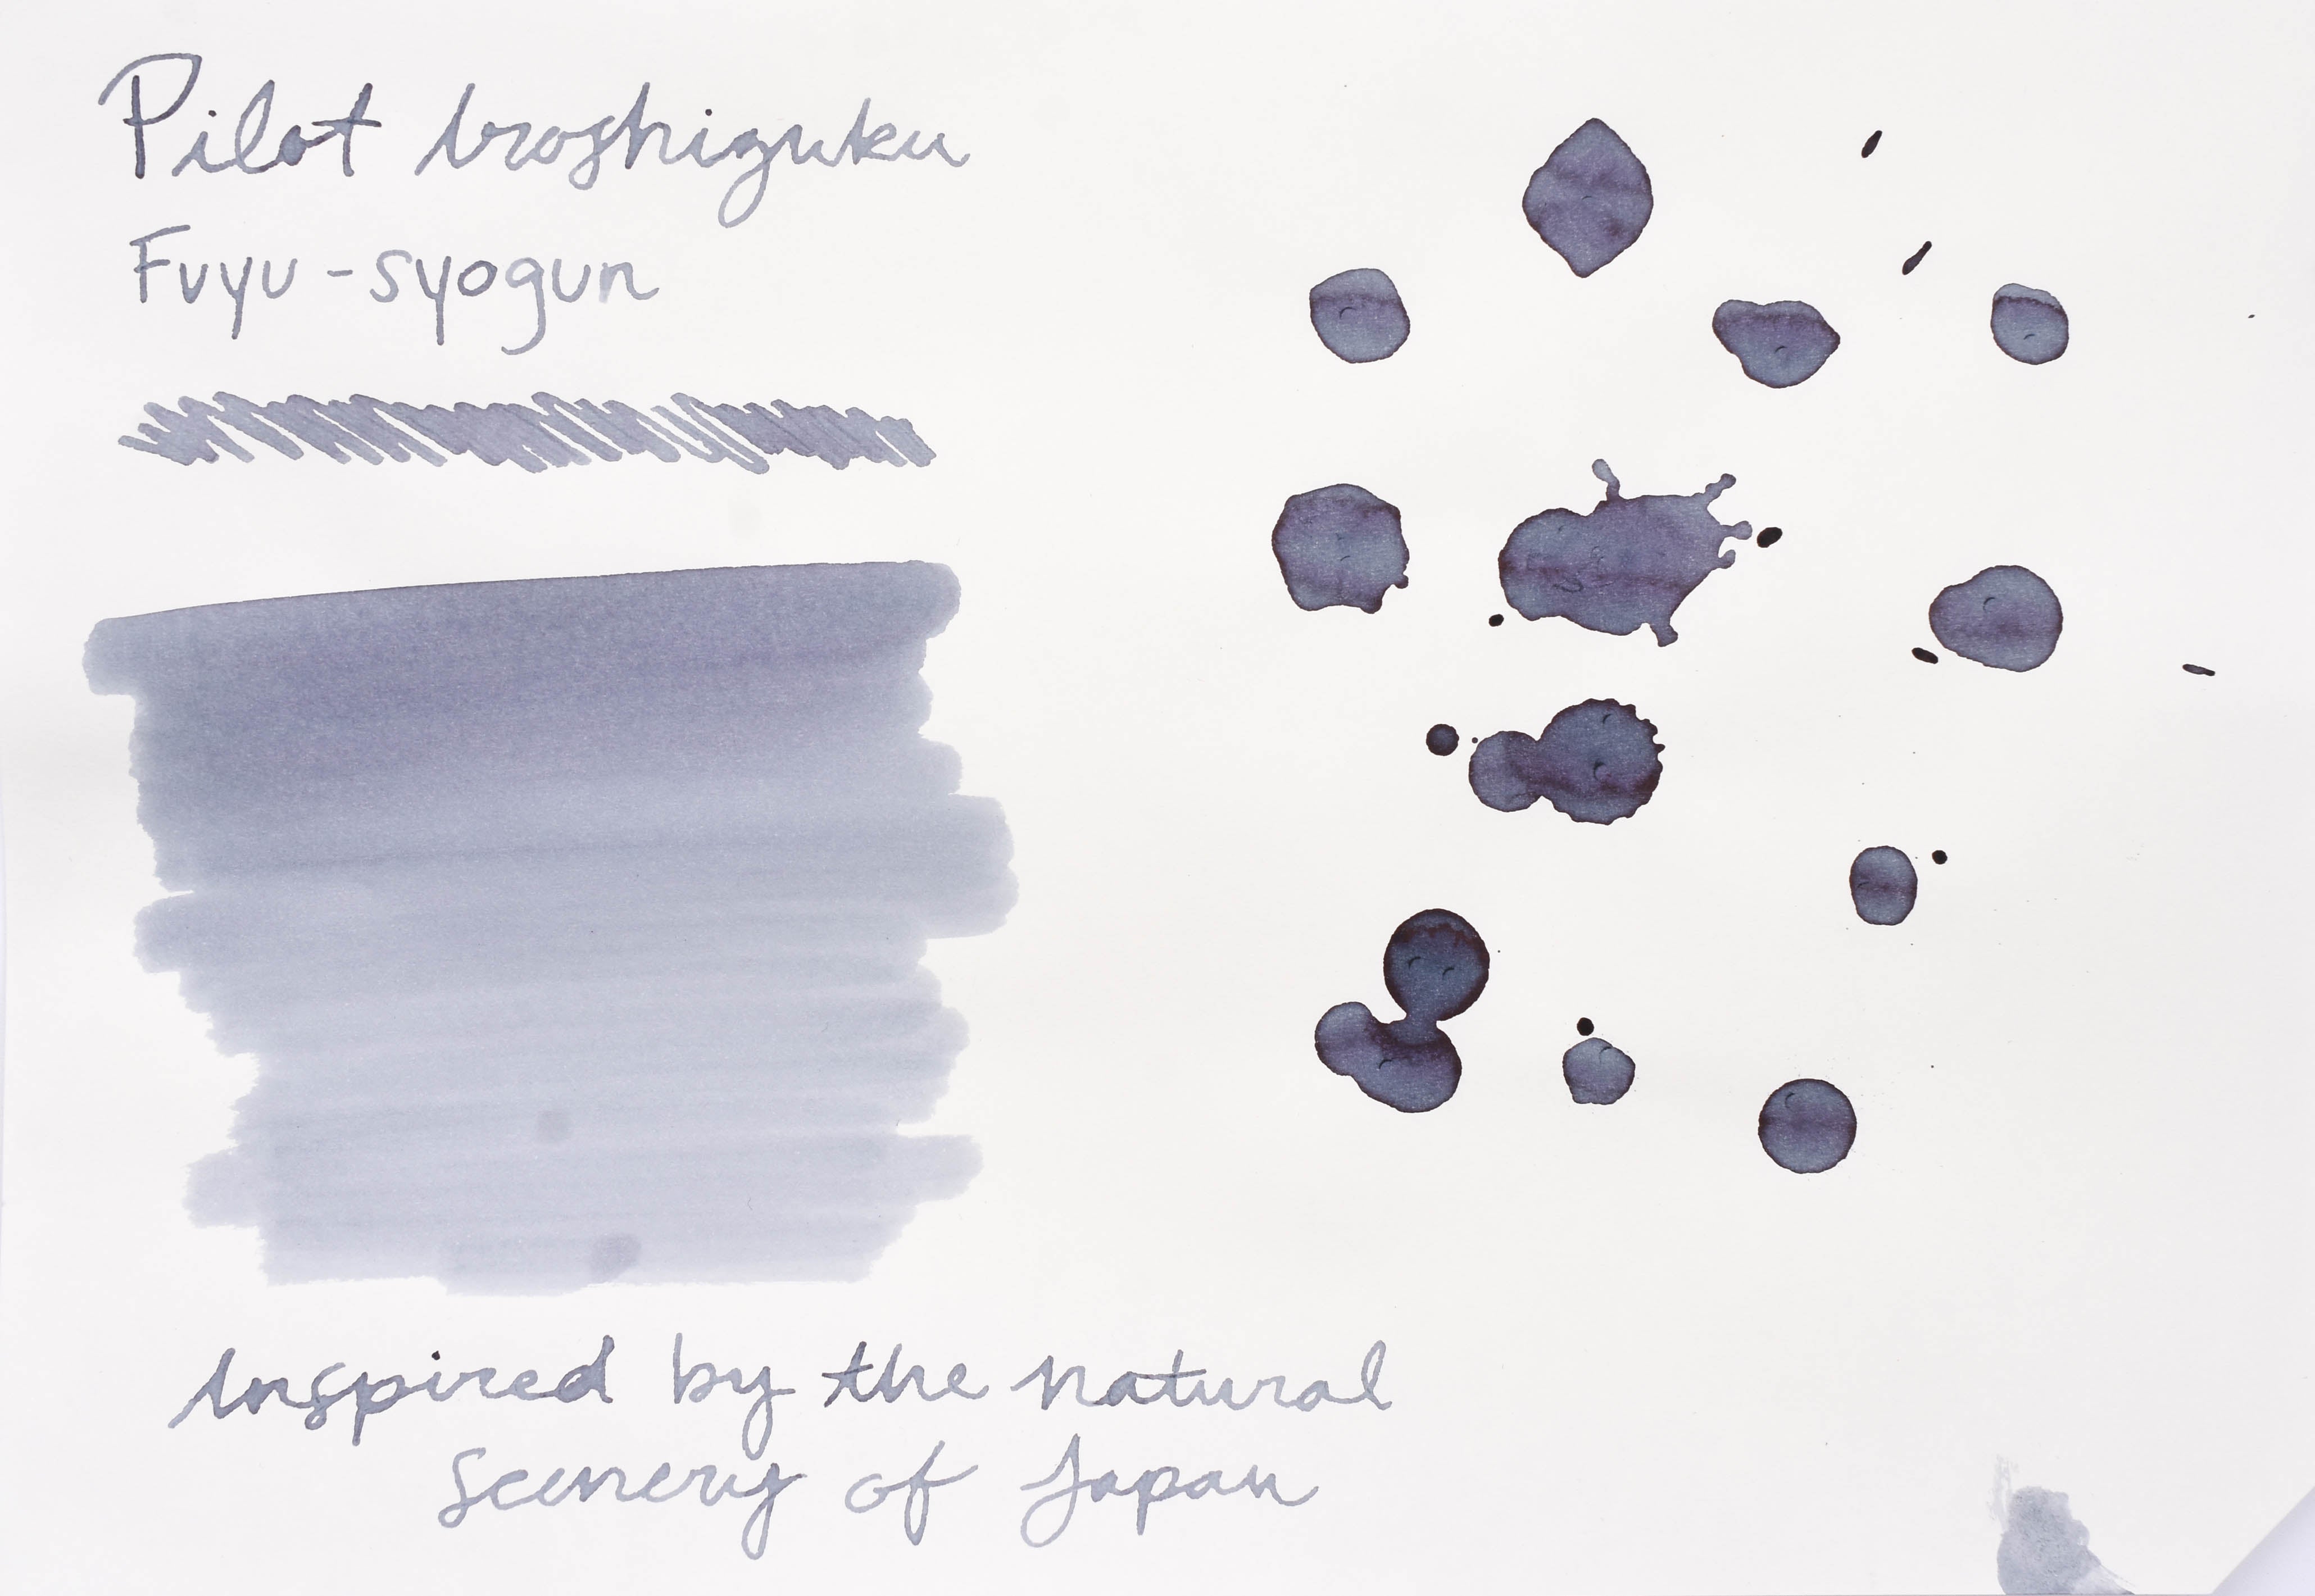 Pilot Iroshizuku
Fuyu-syogun
Inspired by the natural
scenery of Japan